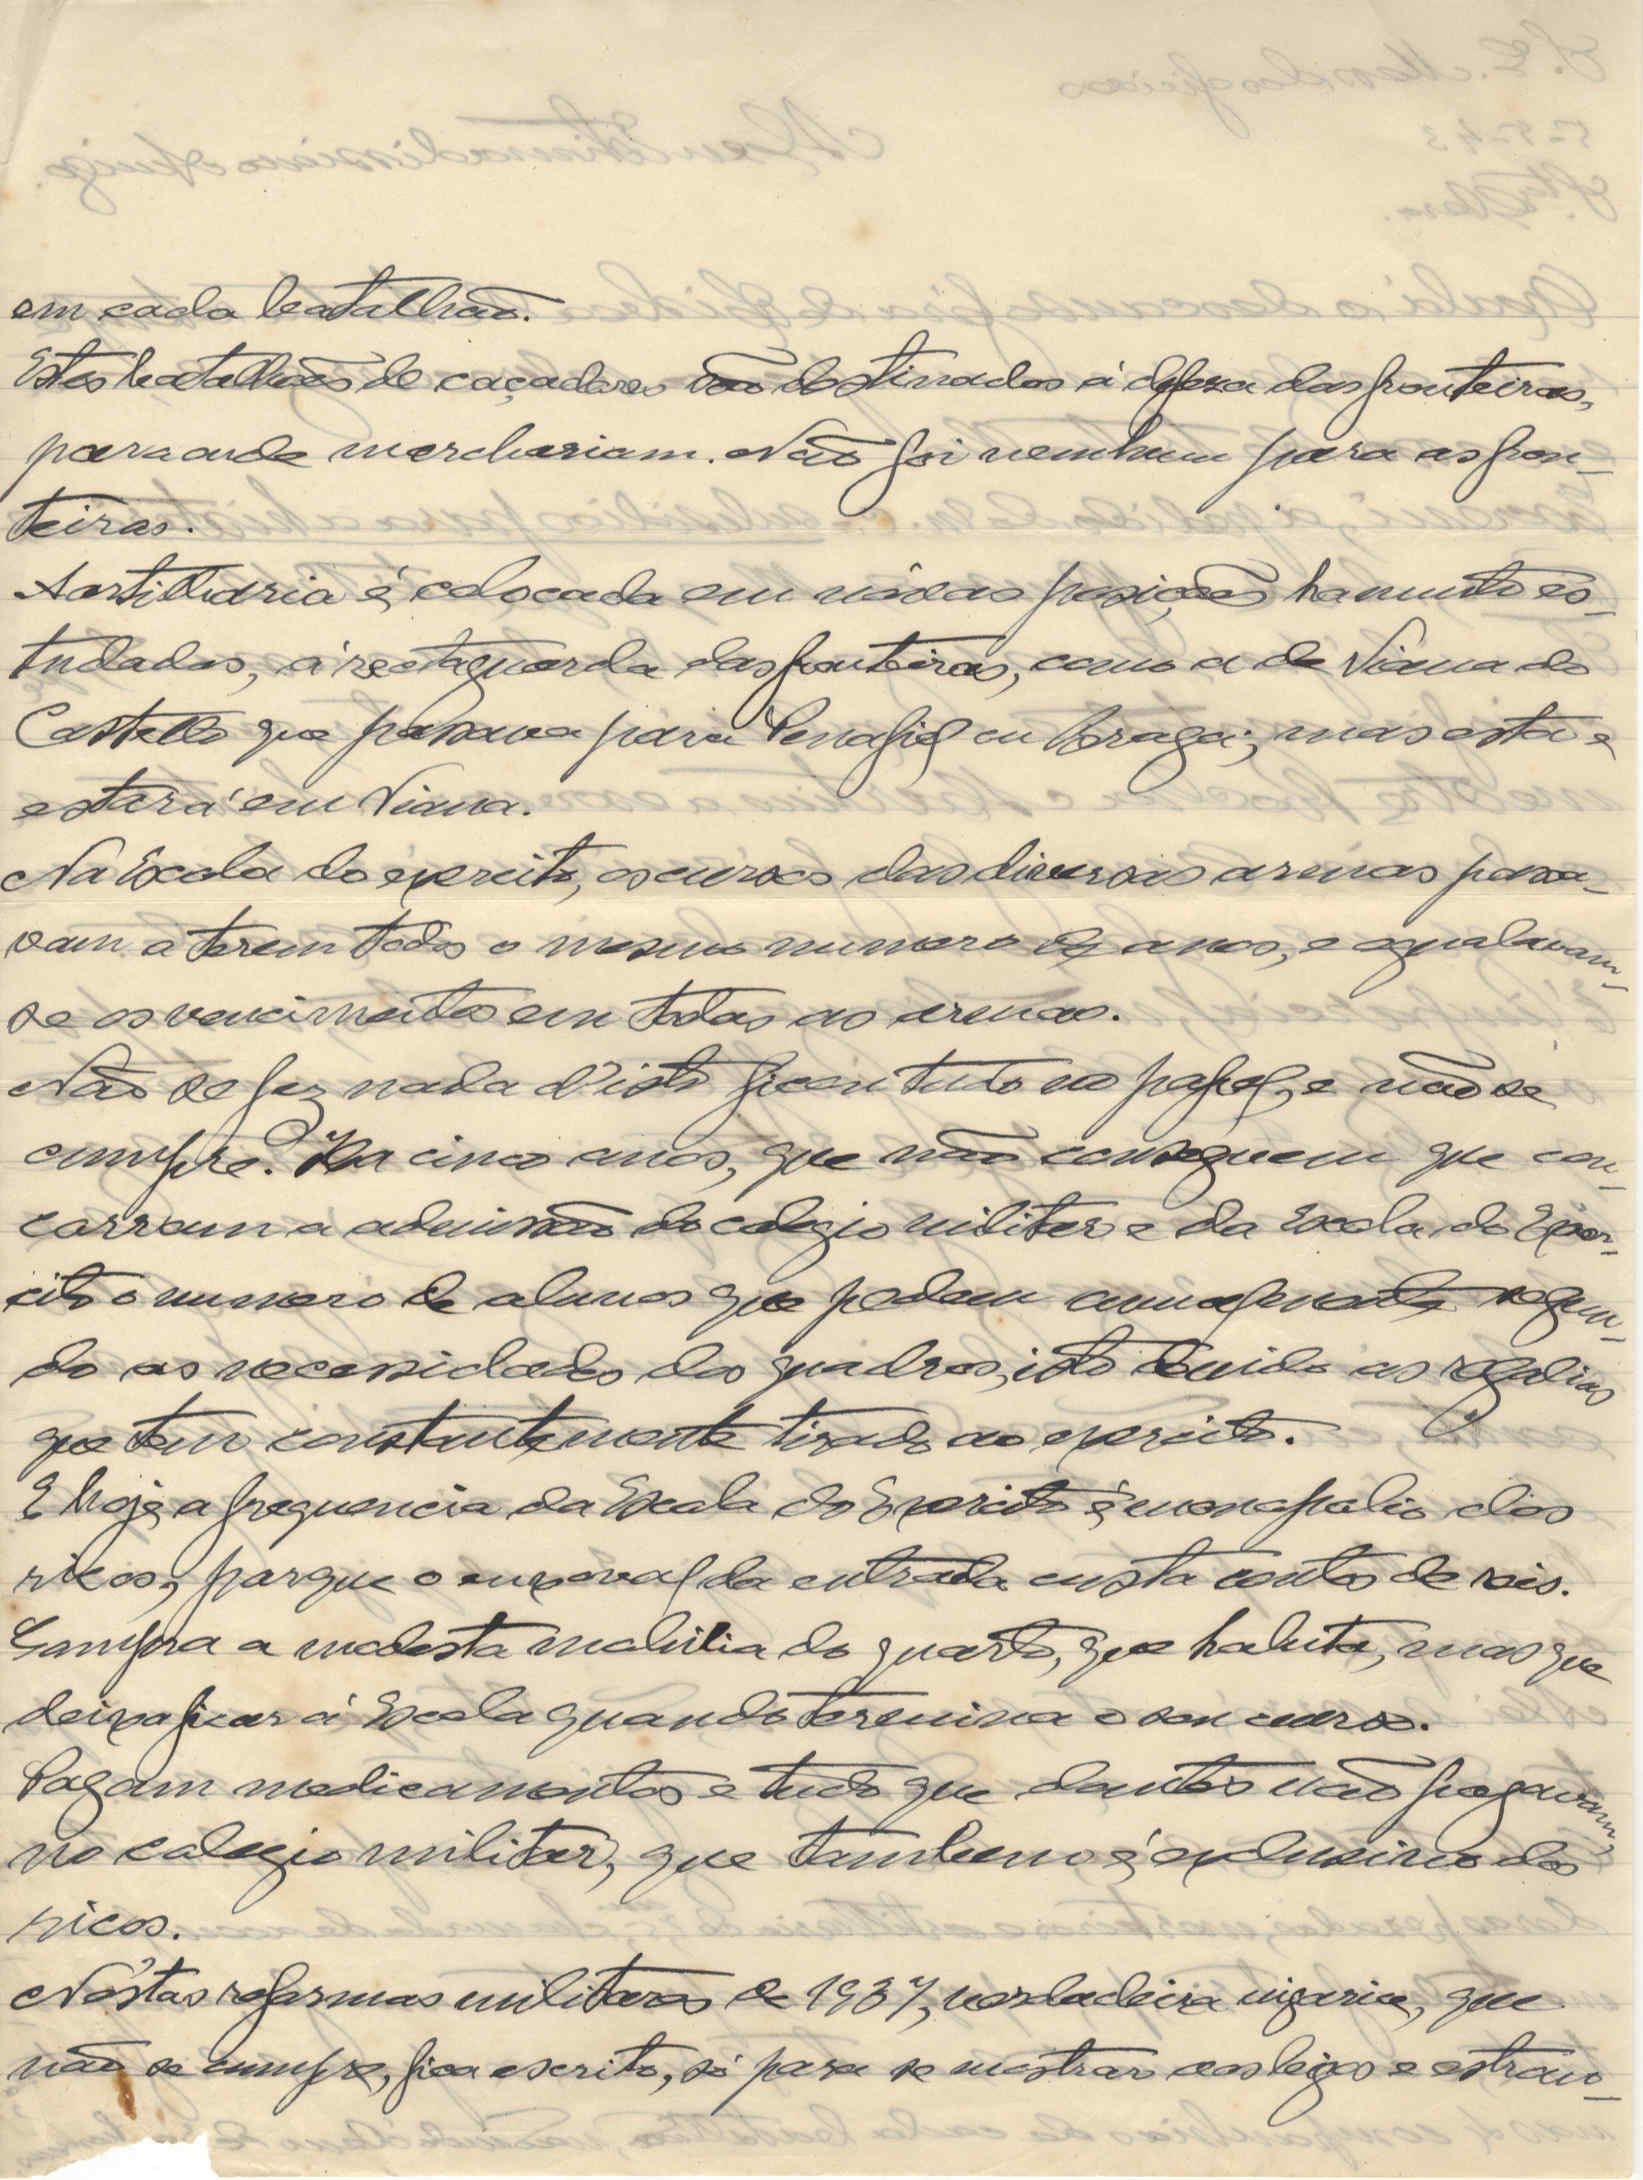 em cada batalhão.
Estes batalhões de caçadores são destinados á defeza das fronteiras,
para onde marchariam. Não foi nenhum para as fron-
teiras.
A artilharia é colocada em novas posições ha muito es-
tudadas, á rectaguarda das fronteiras, como a de Viana do
Castello que passava para Penafiel ou Braga; mas esta e
estará em Viana.
Na Escola do exercito, os cursos das diversas armas passa-
vam a terem todos o mesmo numero de anos, e egualavam-
se os vencimentos em todas as armas.
Não se fez nada d'isto ficou tudo no papel, e não se
cumpre. Ha cinco anos, que não conseguem que con-
corram a admissão do colegio militar e da Escola do Exer-
cito o numero de alunos que pedem anualmente segun-
do as necessidades dos quadros, isto devido as regalias
que tem constantemente tirado ao exercito.
E hoje, a frequencia da Escola do Exercito é monopolio dos
ricos, porque o enxoval da entrada custa contos de reis.
Compra a modesta mobilia do quarto, que habita, mas que
deixa ficar á Escola quando termina o seu curso.
Pagam medicamentos e tudo que dantes não pagavam,
no colegio militar, que tambem é exclusivo dos
ricos.
Néstas reformas militares de 1937, verdadeira vigarice, que
não se cumpre, fica escrito, só para se mostrar aos leigos e estran-